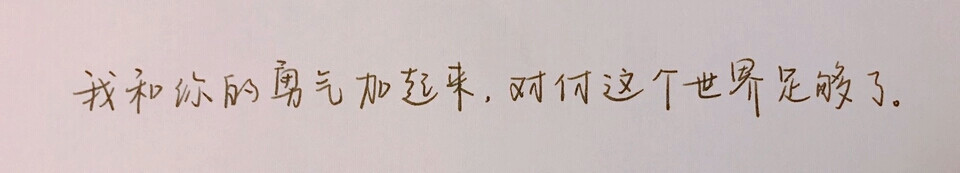 我和你的勇气加起来，对付这个世界足够了。